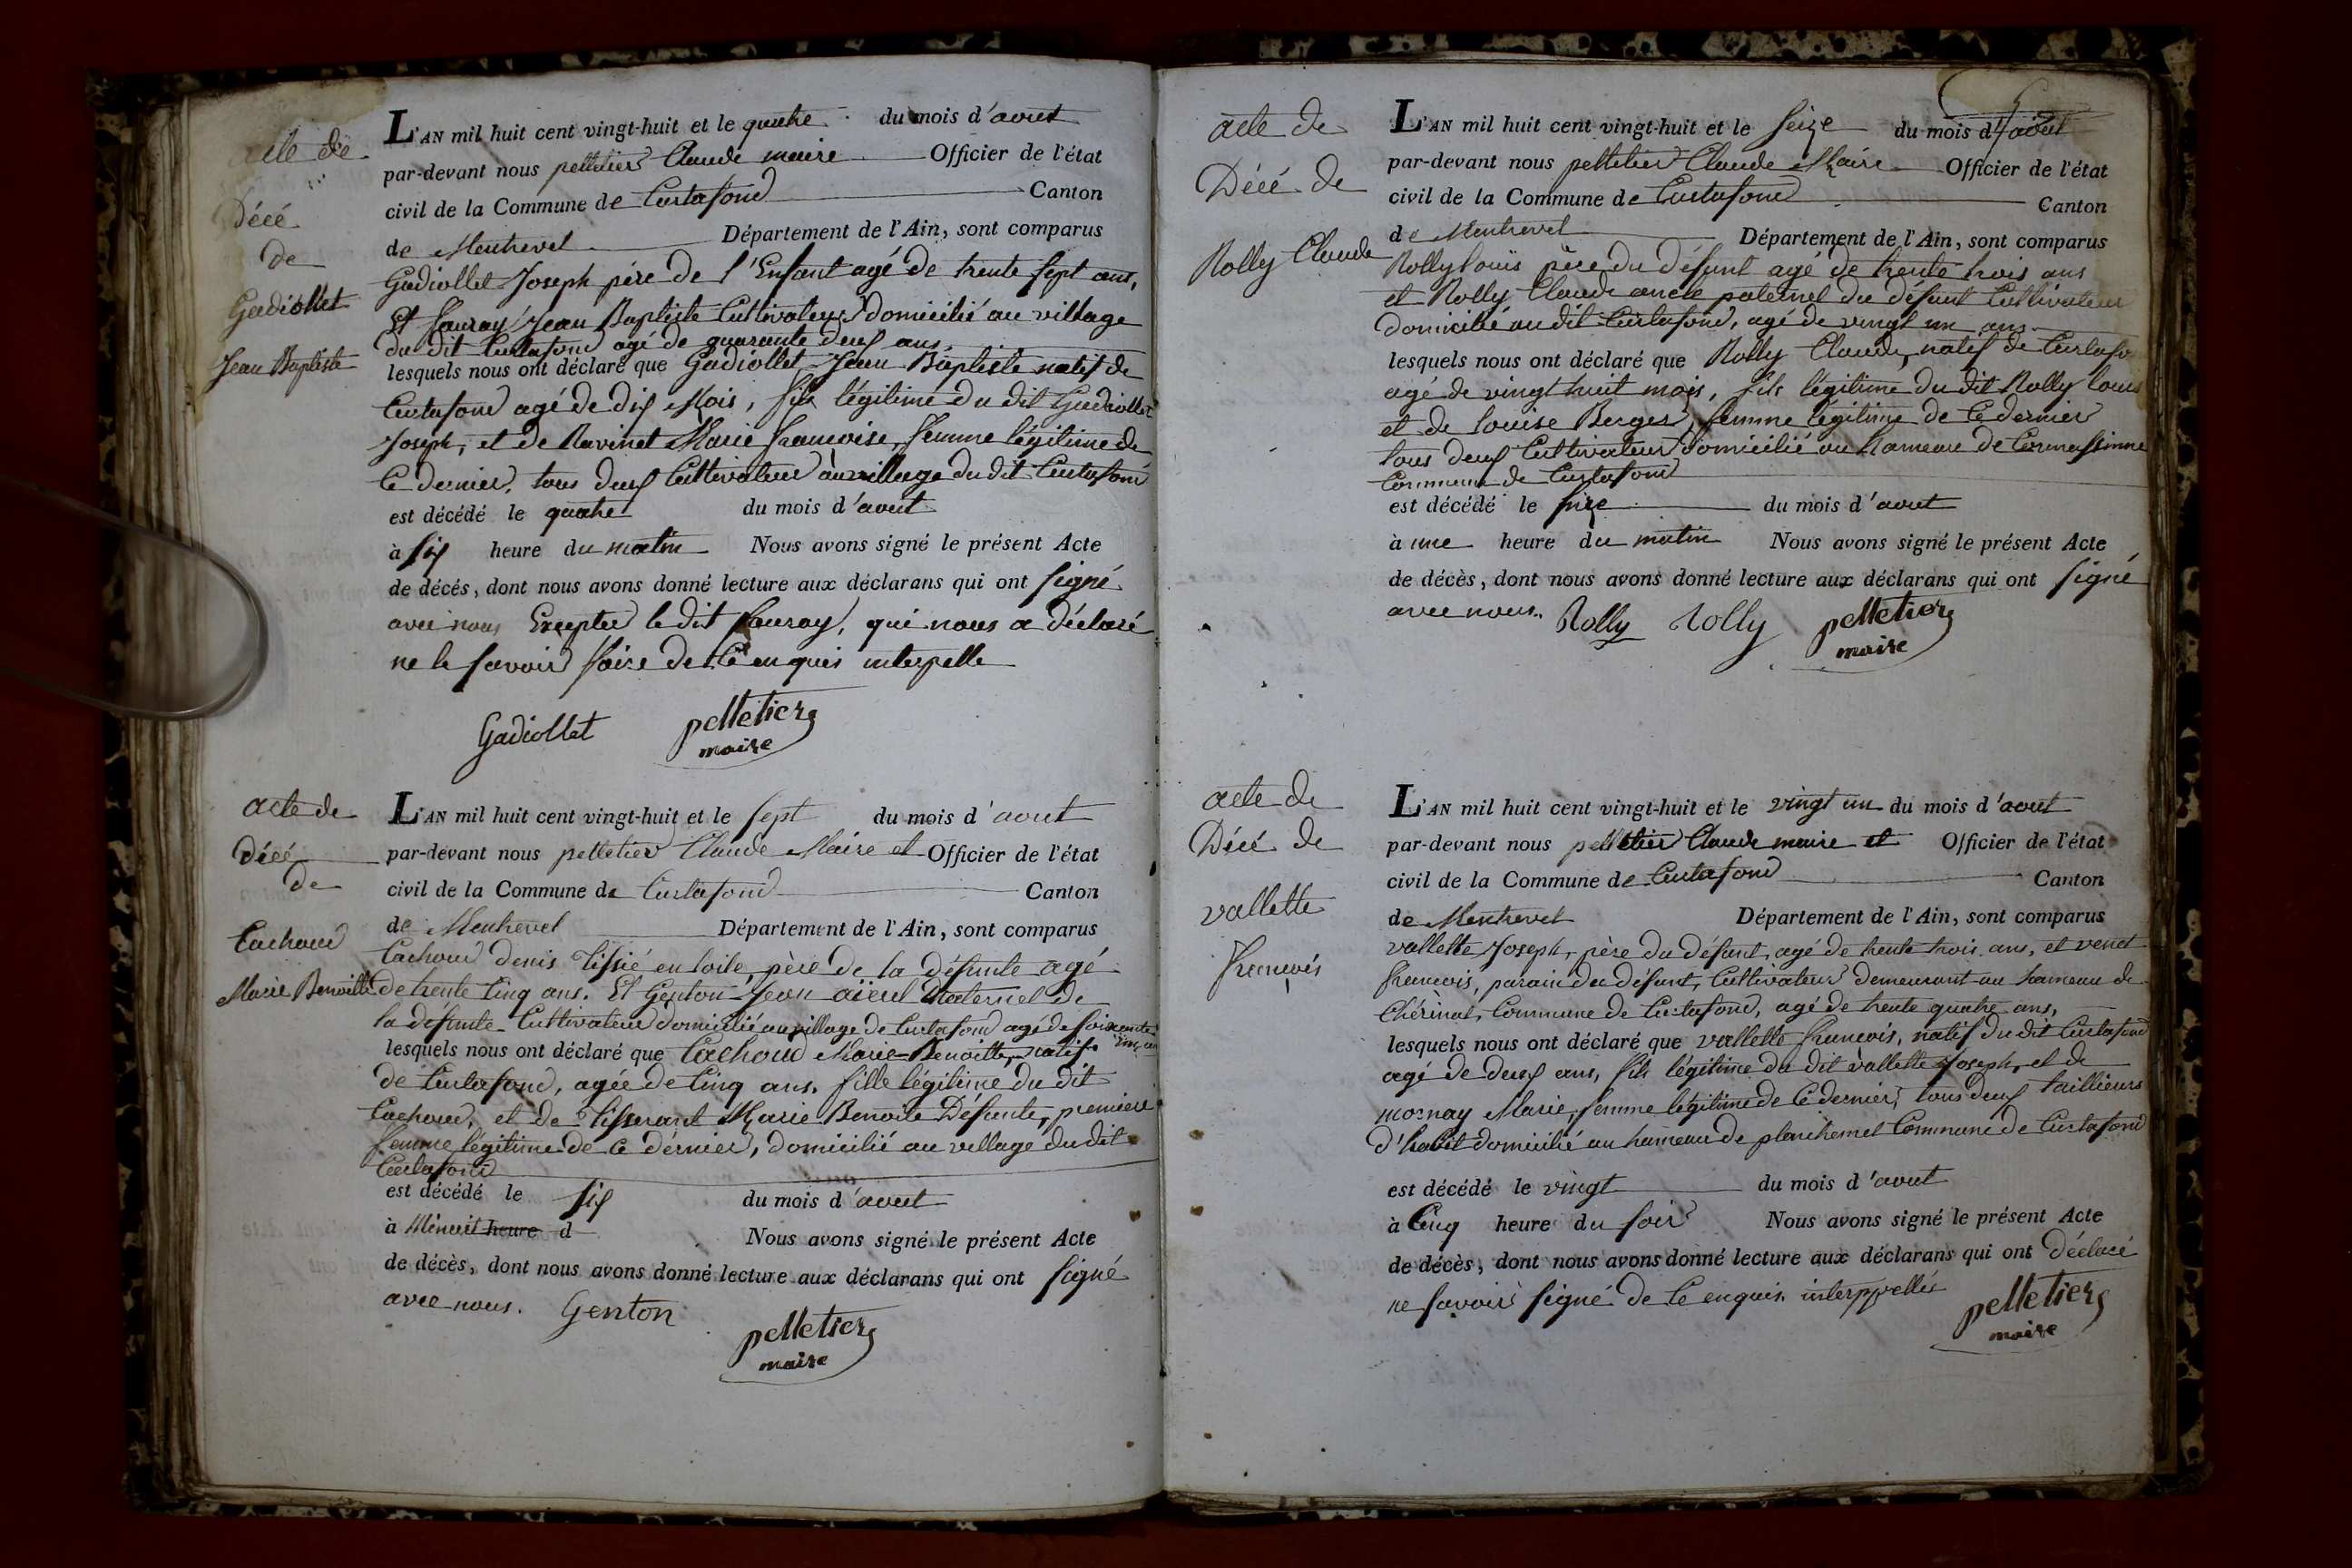 acte de
Décé
de
Gadiollet
Jean Baptiste
L'AN mil huit cent vingt-huit et le quatre du mois d'aout
par-devant nous pelletier Claude maire Officier de l'état
civil de la Commune de Curtafond Canton
de Montrevel Département de l'Ain, sont comparus
Gadiollet Joseph père de l'Enfant agé de trente sept ans,
Et fauray Jean Baptiste Cultivateur domicilié au village
du dit Curtafond agé de quarante deux ans,
lesquels nous ont déclaré que Gadiollet Jean Baptiste natif de
Curtafond agé de dix Mois, fils légitime du dit Gadiollet
Joseph, et de Ravinet Marie francoise, femme légitime de
Ce dernier, tous deux Cultivateur au village du dit Curtafond
est décédé le quatre du mois d'aout
à six heure du matin Nous avons signé le présent Acte
de décés, dont nous avons donné lecture aux déclarans qui ont signé
avec nous Excepter le dit fauray, qui nous a déclaré
ne le savoir faire de Ce enquis interpelle
Gadiollet pelletier
maire
acte de
Décé
de
Cachoud
Marie Benoitte
L'AN mil huit cent vingt-huit et le sept du mois d'aout
par-devant nous pelletier Claude Maire et Officier de l'état
civil de la Commune de Curtafond Canton
de Montrevel Département de l'Ain, sont comparus
Cachoud denis tissié en toile, père de la défunte agé
de trente Cinq ans. Et Genton Jean aïeul Maternel de
la defunte Cultivateur domicilié au village de Curtafond agé de soixante
cinq ans
lesquels nous ont déclaré que Cachoud Marie Benoitte, native
de Curtafond, agée de Cinq ans, fille légitime du dit
Cachoud, et de tisserant Marie Benoite Défunte, premiere
femme légitime de Ce dérnier, domicilié au village du dit
Curtafond
est décédé le six du mois d'aout
à Minuit heure d Nous avons signé le présent Acte
de décès, dont nous avons donné lecture aux déclarans qui ont signé
avec nous. Genton
pelletier
maire
acte de
Décé de
Rolly Claude
L'AN mil huit cent vingt-huit et le seize du mois d'aout
par-devant nous pelletier Claude Maire Officier de l'état
civil de la Commune de Curtafond Canton
de Montrevel Département de l'Ain, sont comparus
Rolly louis père du défunt agé de trente trois ans
et Rolly Claude oncle paternel du défunt Cultivateur
domicilié au dit Curtafond, agé de vingt un ans
lesquels nous ont déclaré que Rolly Claude, natif de Curtafo
agé de vingt huit mois, fils légitime du dit Rolly louis
et de louise Berger, femme légitime de Ce dernier
tous deux Cultivateur domicilié au hameau de
Commune de Curtafond
est décédé le seize du mois d'aout
à une heure du matin Nous avons signé le présent Acte
de décès, dont nous avons donné lecture aux déclarans qui ont signé
avec nous. Rolly Rolly pelletier
maire
acte de
Décé de
vallette
francois
L'AN mil huit cent vingt-huit et le vingt un du mois d'aout
par-devant nous pelletier Claude maire et Officier de l'état
civil de la Commune de Curtafond Canton
de Montrevel Département de l'Ain, sont comparus
vallette Joseph, père du défunt, agé de trente trois ans, et venet
francois, parain du défunt, Cultivateur demeurant au hameau de
Chérinal, Commune de Curtafond, agé de trente quatre ans,
lesquels nous ont déclaré que vallette francois, natif du dit Curtafond
agé de deux ans, fils légitime du dit vallette Joseph, et de
mornay Marie, femme légitime de Ce dernier, tous deux taillieurs
d'habit domicilié au hameau de planchemel Commune de Curtafond
est décédé le vingt du mois d'aout
à Cinq heure du soir Nous avons signé le présent Acte
de décès, dont nous avons donné lecture aux déclarans qui ont déclaré
ne savoir signé de Ce enquis interppellés
pelletier
maire